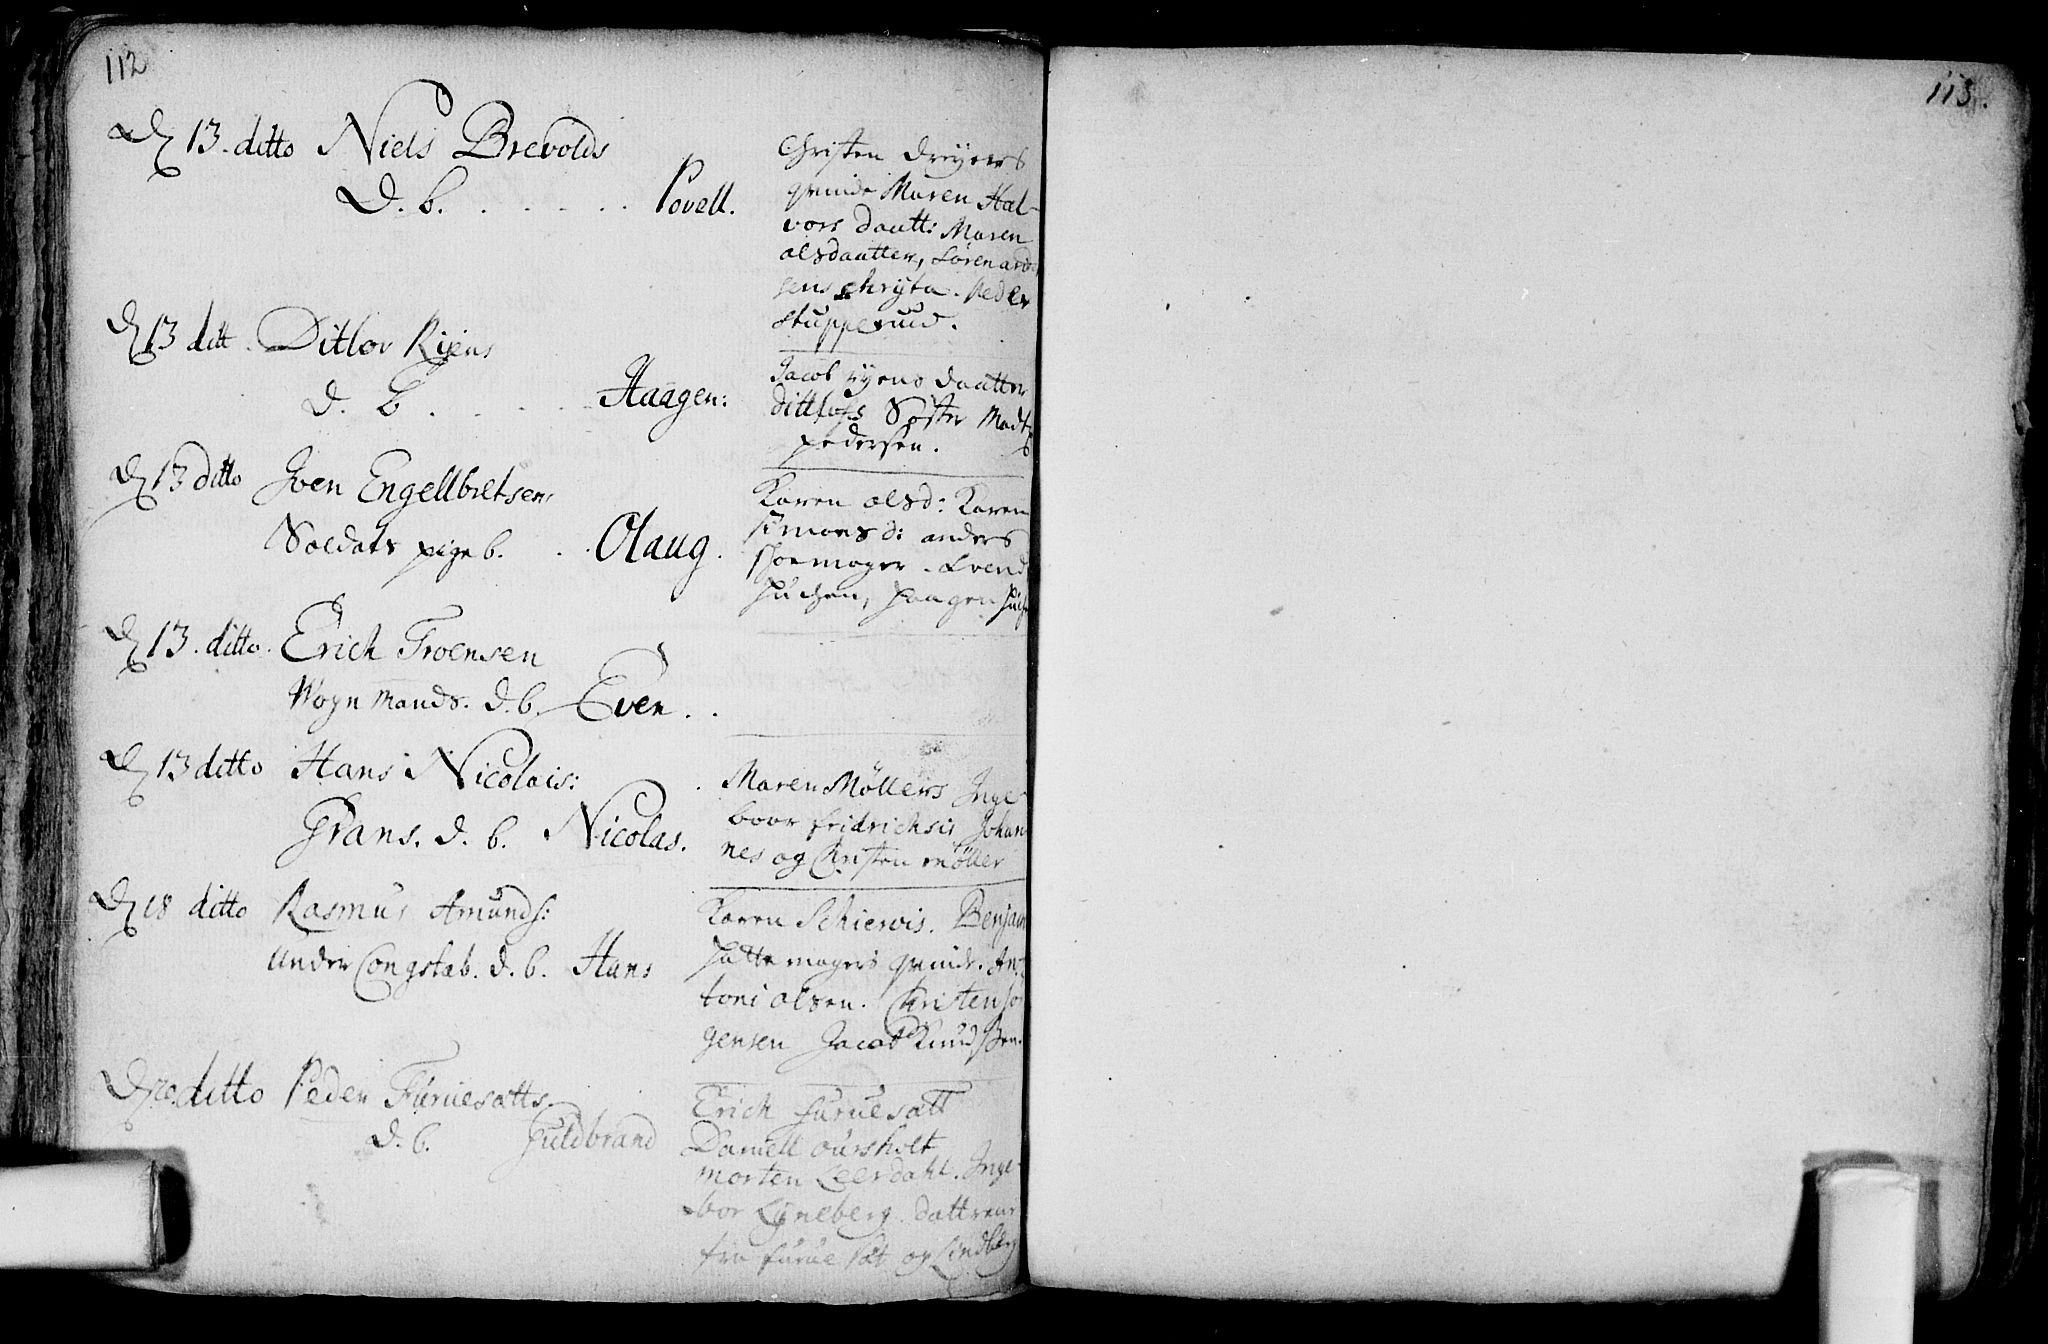 112
D 13. ditto Niels Brevolds
D. b. . . . . . Povell.
Christen dreyers
qvinde Maren Hal-
vors daatt: Maren
olsdaatter, Søren
Peder
stupperuud.
D 13 ditt. Ditlov Rijens
d. b. . . . . Haagen:
Jacob rijens daatter
dittlofs Søster Mads
pedersen.
D 13 ditto Joen Engellbretsen
Soldats pige b. . . Olaug.
Karen olsd: Karen
simonsd: anders
skoemager. Svend
haagen
D 13. ditto. Erich Troensen
Wogn mands. d. b. Even . .
D 13 ditto Hans Nicolais:
Frans. d. b. Nicolas.
Maren Møllers Inge-
boor fridrichsis Johan-
nes og Christen møller
D 18 ditto Rasmus Amunds:
under Congstab. d. b. Hans
Karen Schiervis. Benjam
hattemagers qvinde. An-
toni olsen. Christen Jør
gensen Jacob Knudsen.
D 20. ditto Peder Furuesætts
d. b. Guldbrand
Erich furuesatt
Daniell oursholt
morten Leerdahl. Inge-
bor Lyneberg. dattrene
fra furue sæt og Lindberg
113.